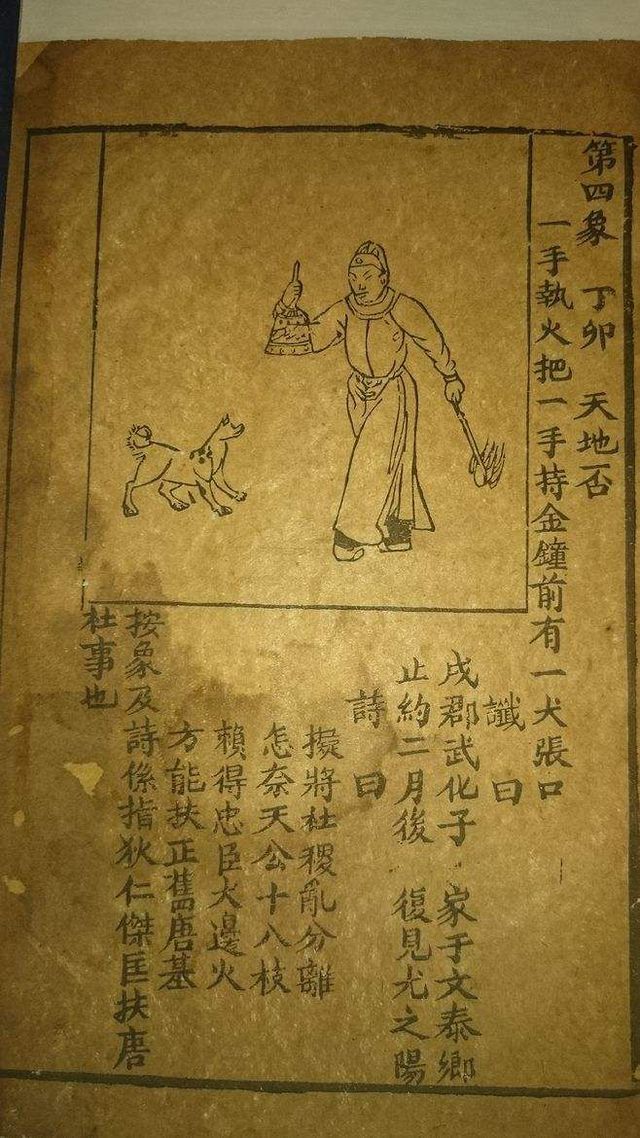 第四象 丁卯 天地否
一手執火把一手持金鐘前有一犬張口
讖曰
戌郡武化子 家于文泰鄉
止約二月後 復見光之陽
詩曰
擬將杜稷亂分離
怎奈天公十八枝
賴得忠臣犬邊火
方能扶正舊唐基
按象及詩係指狄仁傑匡扶唐
杜事也